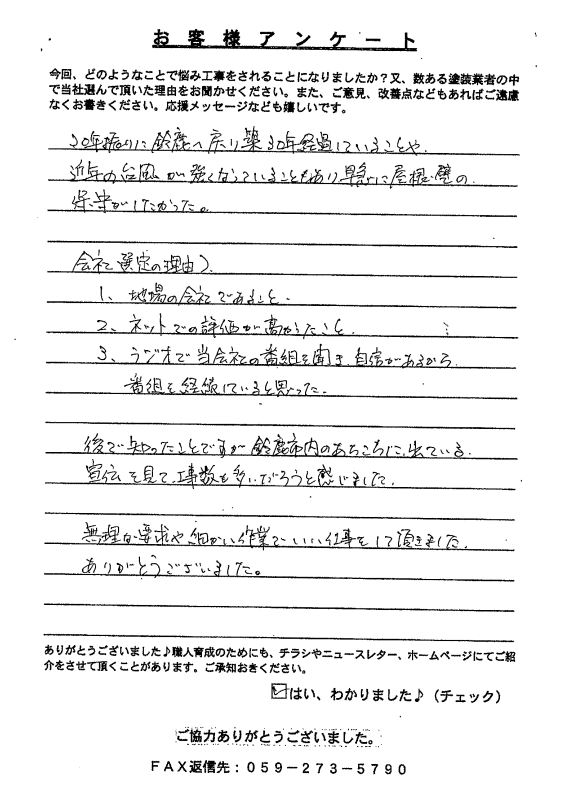 お客様アンケート
今回、どのようなことで悩み工事をされることになりましたか？又、数ある塗装業者の中
で当社選んで頂いた理由をお聞かせください。また、ご意見、改善点などもあればご遠慮
なくお書きください。応援メッセージなども嬉しいです。
30年振りに鈴鹿へ戻り築30年経過していることや、
近年の台風が強くなっていることもあり早急に屋根、壁の
保守がしたかった。
会社選定の理由）
1、地場の会社であること、
2、ネットでの評価が高かったこと、
3、ラジオで当会社の番組を聞き、自信があるから、
番組を経続していると思った。
後で知ったことですが鈴鹿市内のあちこちに出ている、
宣伝を見て、工事数も多いだろうと感じました。
無理な要求や細かい作業でいい仕事をして頂きました、
ありがとうございました。
ありがとうございました♪職人育成のためにも、チラシやニュースレター、ホームページにてご紹
介をさせて頂くことがあります。ご承知おきください。
☑はい、わかりました♪（チェック）
ご協力ありがとうございました。
ＦＡＸ返信先：０５９－２７３－５７９０